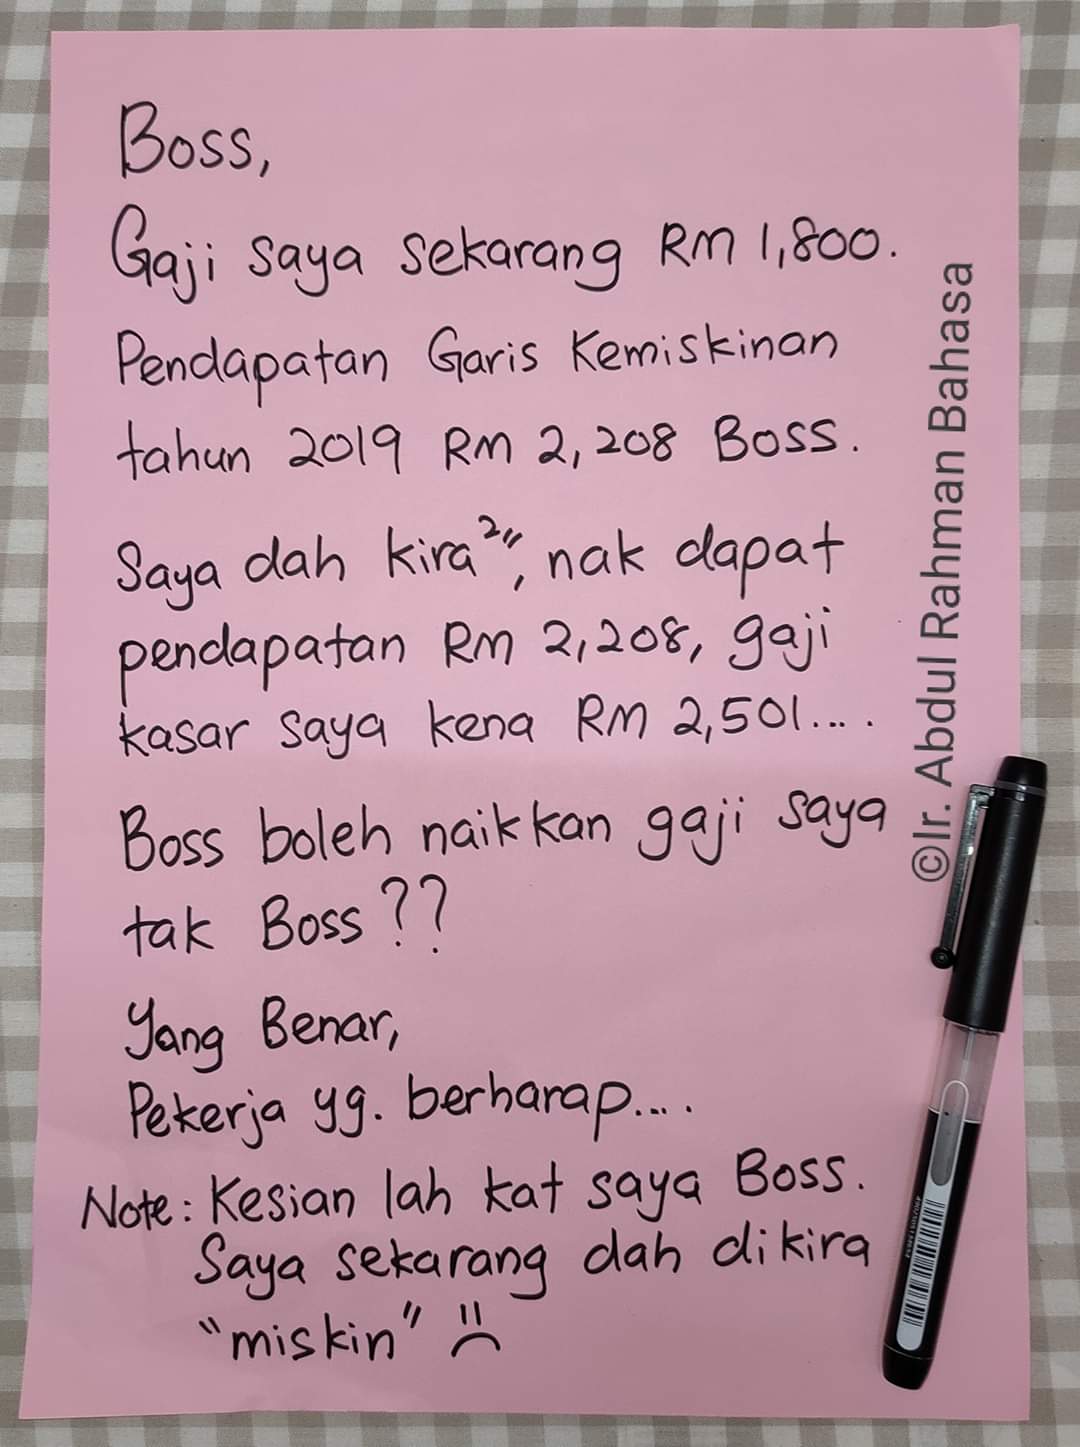 Boss,
Gaji saya sekarang RM 1,800.
Pendapatan Garis Kemiskinan
tahun 2019 RM 2,208 Boss.
Saya dah kira²", nak dapat
pendapatan RM 2,208, gaji
kasar saya kena RM 2,501....
Boss boleh naikkan gaji saya
tak Boss??
Yang Benar,
Pekerja yg. berharap....
Note: Kesian lah kat saya Boss.
Saya sekarang dah dikira
"miskin"
©Ir. Abdul Rahman Bahasa